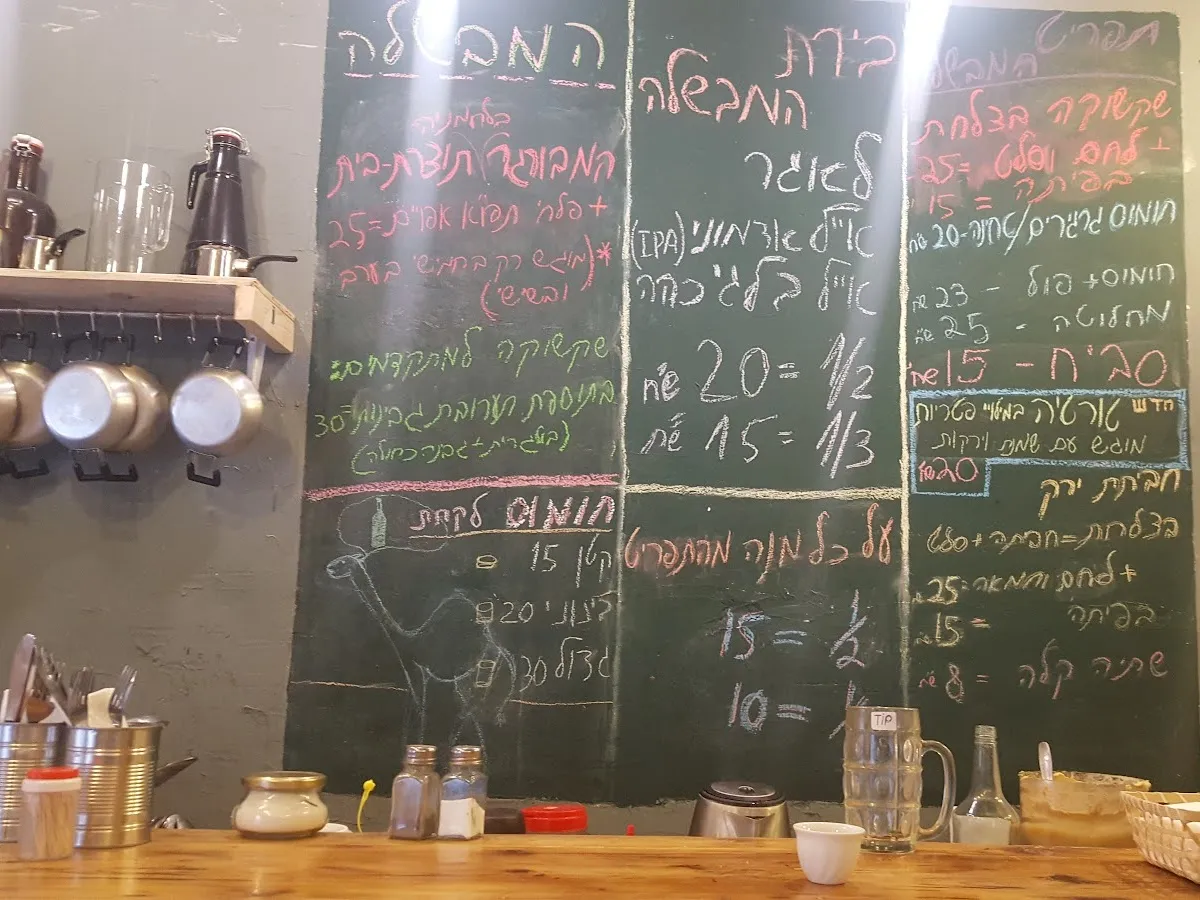 תפריט
המבשלה
שקשוקה בצלחת
+ לחם וסלט =25
בפיתה = 15
חומוס גרגירים/טחינה-20 ש"ח
חימוס+ פול - 23 ש"ח
מחלוטה - 25 ש"ח
סביח - 15 ש"ח
חדש טורטיה במילוי פטריות
מוגש עם שמנת וירקות
20 ש"ח
חביתת ירק
בצלחת=חביתה+סלט
+ לחם וחמאה=25
בפיתה = 15
שתיה קלה = 8 ש"ח
בירת
המבשלה
לאוגר
אייל אדמוני (IPA)
אייל בלגי כהה
1/2 = 20 ש"ח
1/3 = 15 ש"ח
על כל מנה מהתפריט
1/2 = 15
= 10
המבשלה
בלחמניה
המבורגר תוצרת-בית
+ פלחי תפו"א אפויים =25
*(מוגש רק בחמישי בערב
ובשישי)
שקשוקה למתקדמים:
בתוספת תערובת גבינות=30
(בולגרית+גבנה כחולה)
חומוס לקחת
קטן 15
בינוני 20
גדול 30
TIP